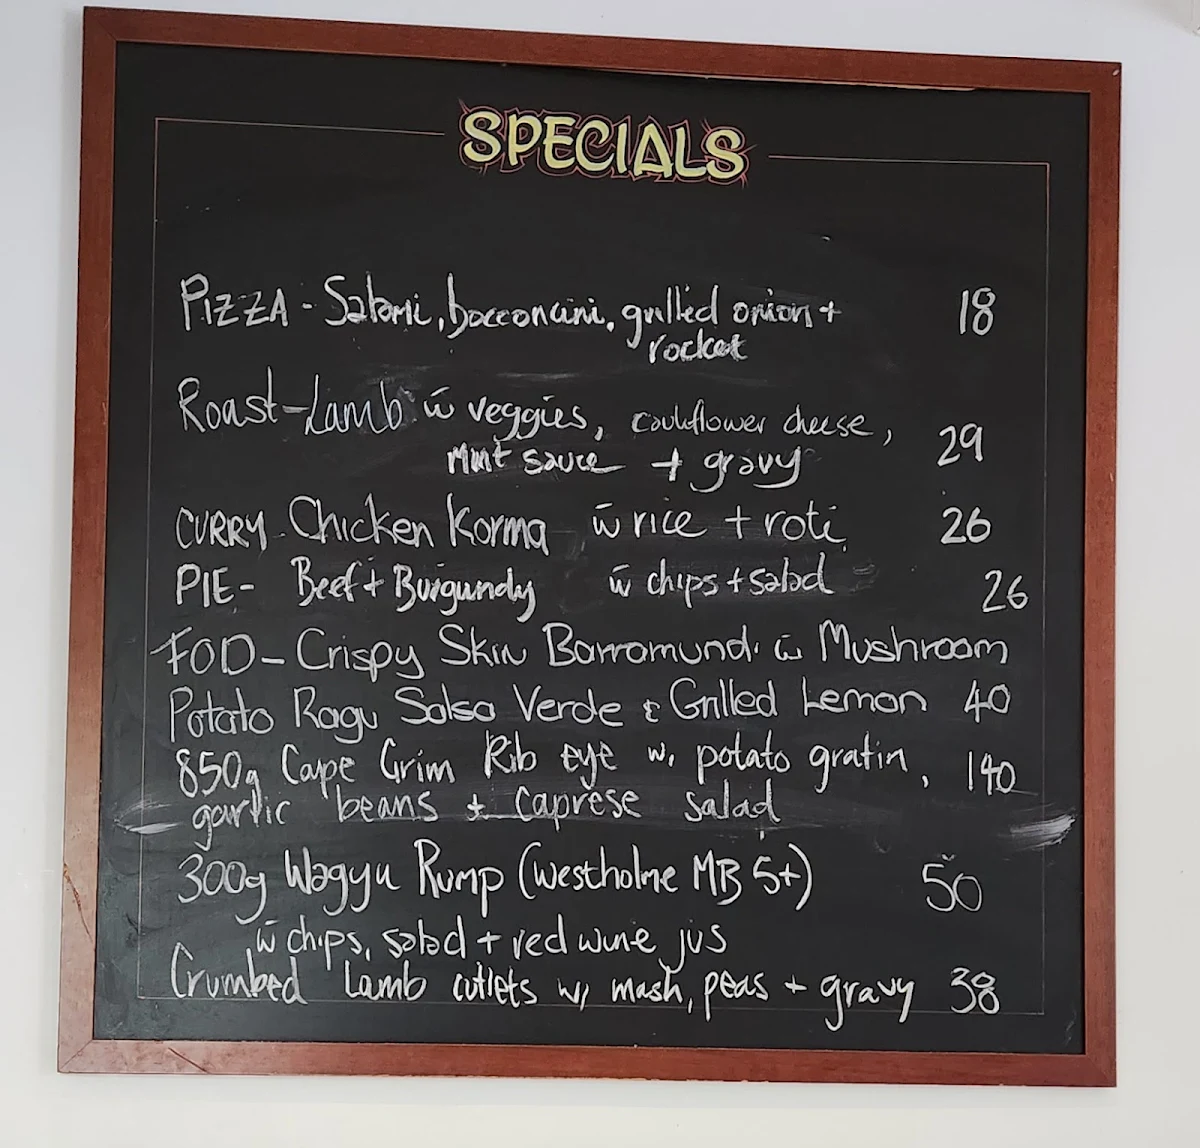 SPECIALS
PIZZA - Salami, bocconcini, grilled onion + 18
rocket
Roast-Lamb w̄ veggies, cauliflower cheese, 29
mint sauce + gravy
CURRY - Chicken Korma w̄ rice + roti 26
PIE - Beef + Burgundy w̄ chips + salad 26
FOD - Crispy Skin Barramundi w̄ Mushroom
Potato Ragu Salsa Verde & Grilled Lemon 40
850g Cape Grim Rib eye w. potato gratin, 140
garlic beans + caprese salad
300g Wagyu Rump (Westholme MB 5+) 50
w̄ chips, salad + red wine jus
Crumbed Lamb cutlets w/ mash, peas + gravy 38